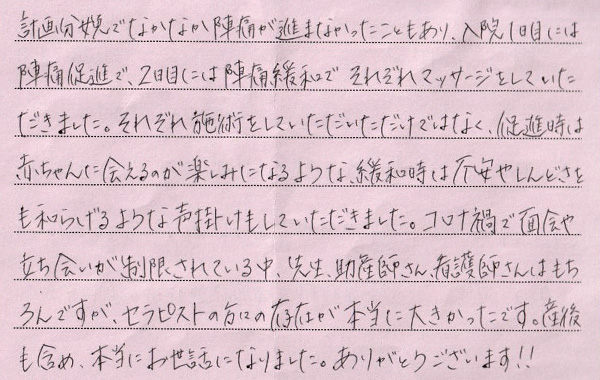 計画分娩でなかなか陣痛が進まなかったこともあり、入院1日目には
陣痛促進で、2日目には陣痛緩和で それぞれマッサージをしていた
だきました。それぞれ施術をしていただいただけではなく、促進時は
赤ちゃんに会えるのが楽しみになるような、緩和時は不安やしんどさを
も和らげるような声掛けもしていただきました。コロナ禍で面会や
立ち会いが制限されている中、先生、助産師さん、看護師さんはもち
ろんですが、セラピストの方々の存在が本当に大きかったです。産後
も含め、本当にお世話になりました。ありがとうございます!!